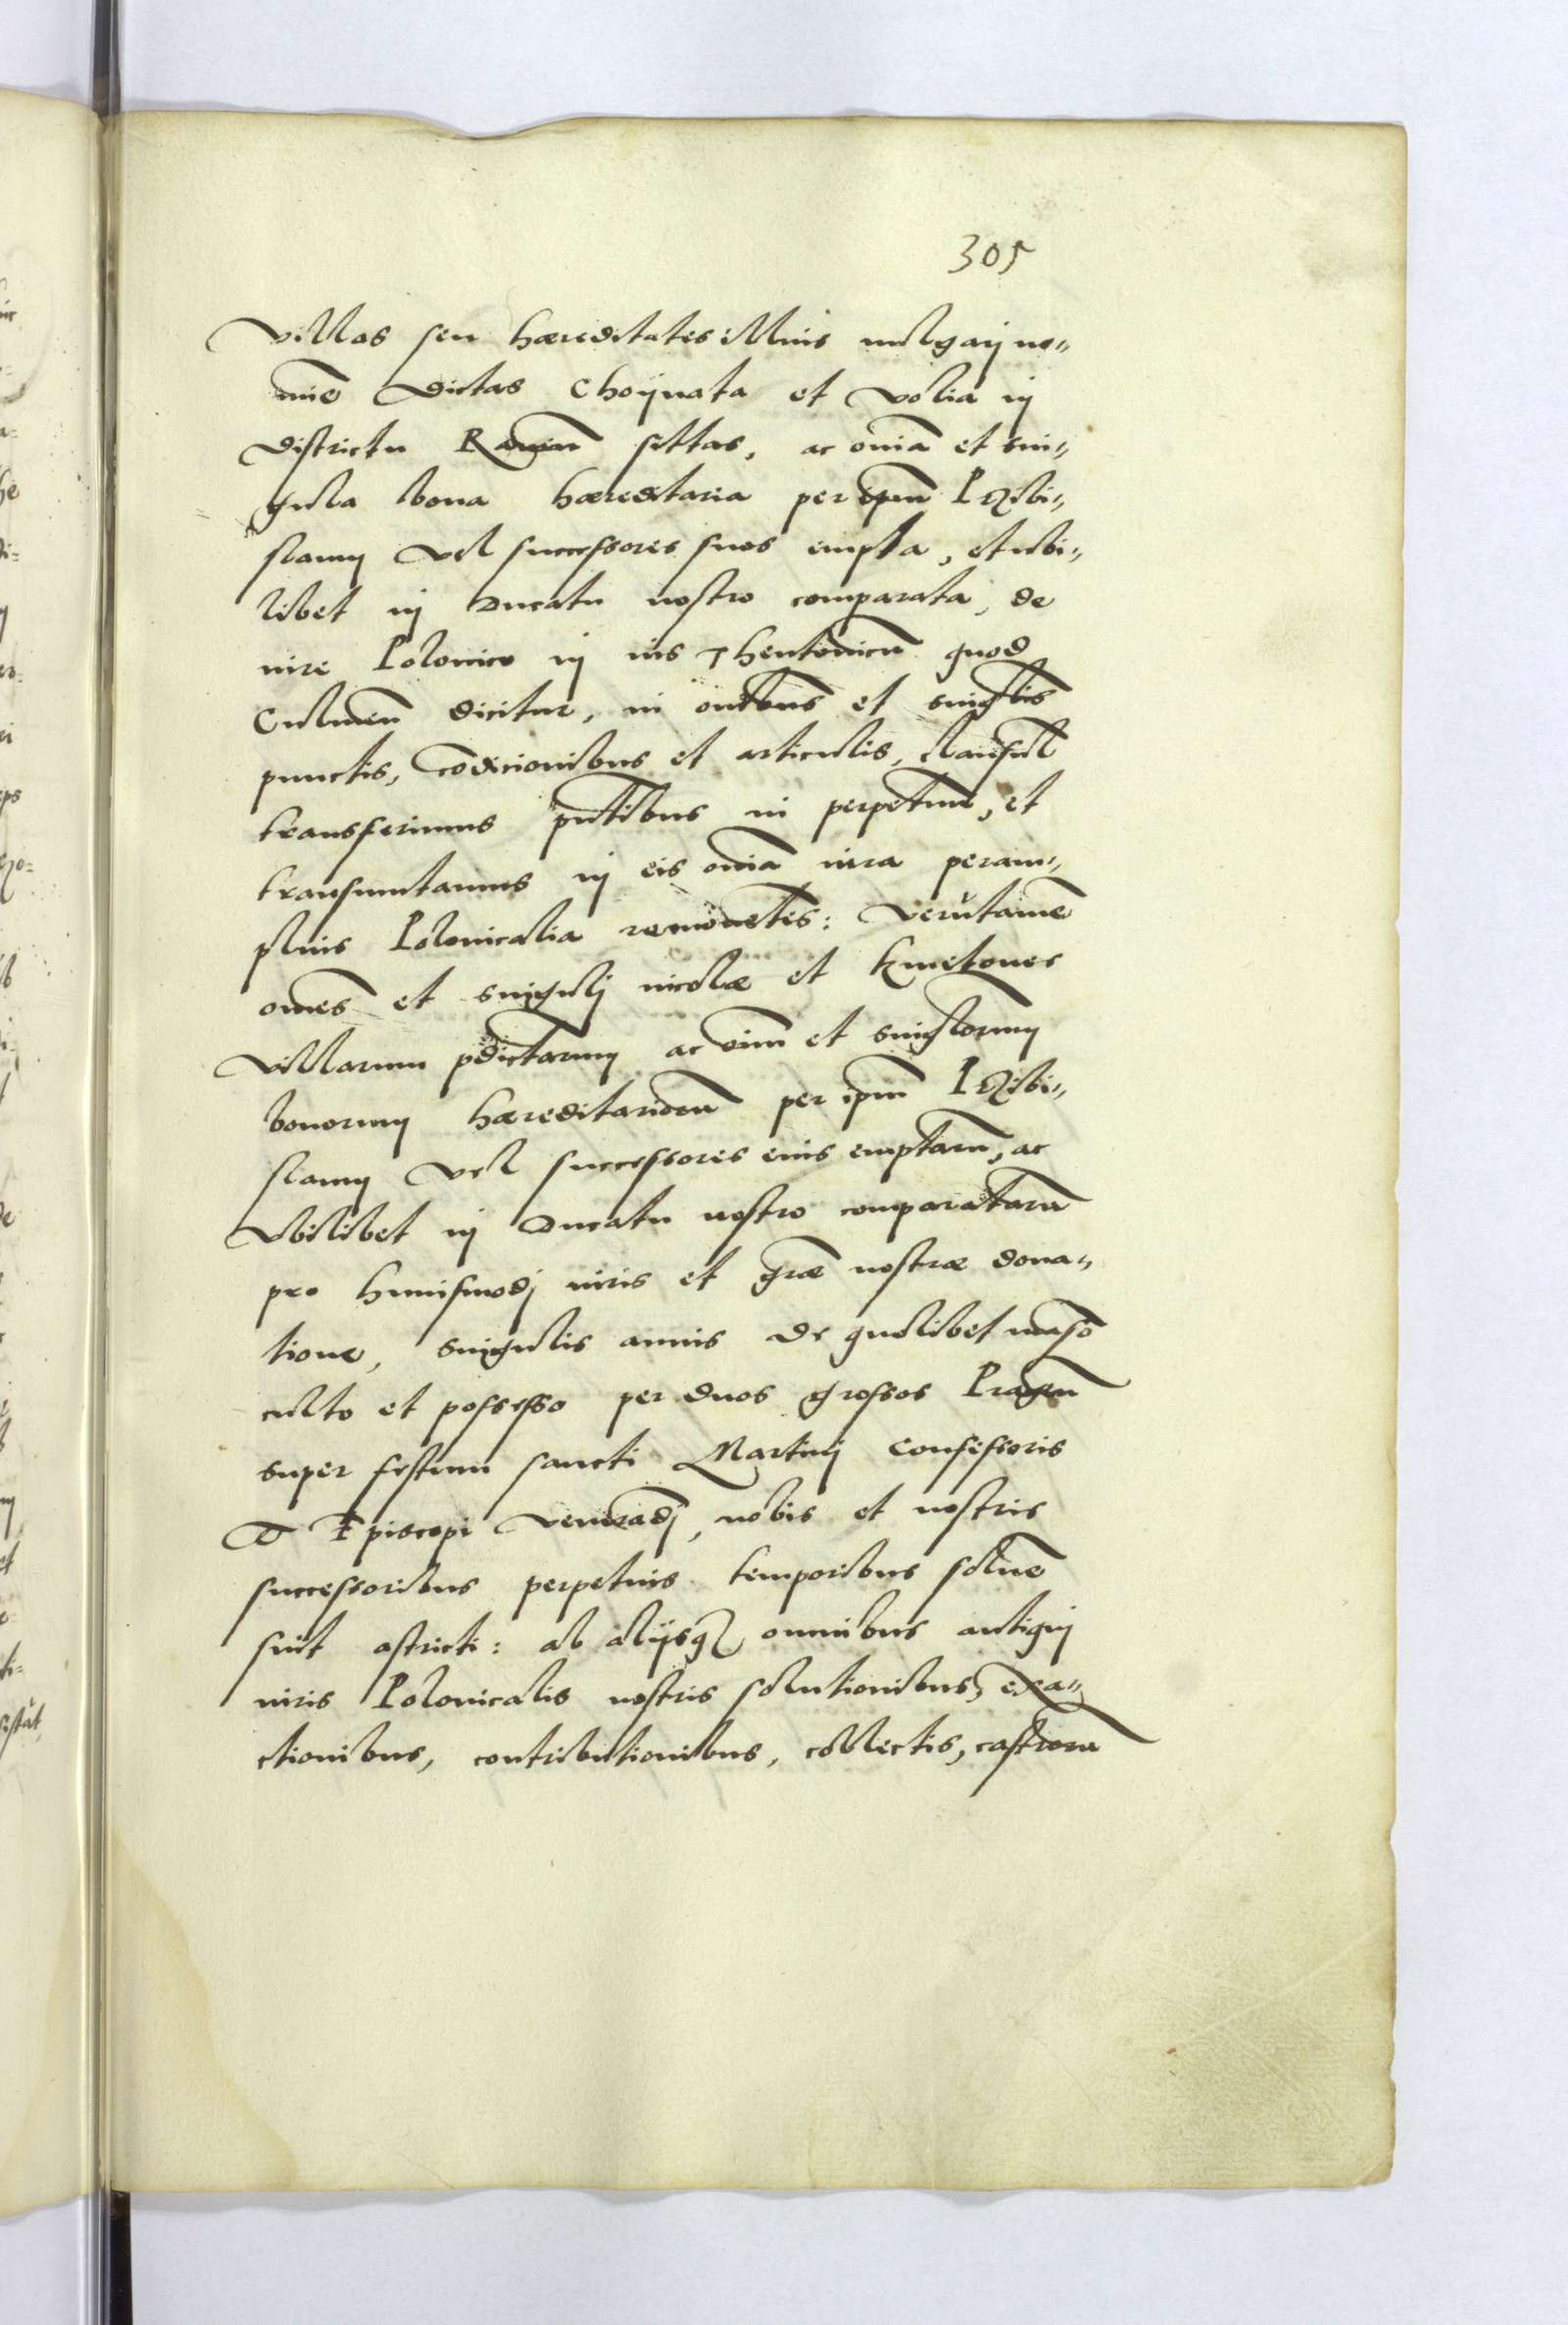 305
villas seu hæreditates illius uulgarj no„
mīe dictas Choÿnata et Volia in
districtu Rauen̄ sittas, ac om̄ia et sin„
gula bona hæreditaria per ip̄m Przibi„
slaum vel successores suos empta, et ubi„
libet in Ducatu nostro comparata, de
iure Polonico in ius Theutonicū quod
Culmen̄ dicitur, in om̄ibus et singl̄is
punctis, cōdicionibus et articulis, clausul̄
transferimus pn̄tibus in perpetuū, et
transmutamus in eis om̄ia iura peram„
plius Polonicalia remouētes: verūtamē
om̄es et singulj incolæ et kmetones
villarum p̄dictarum ac om̄ium et singl̄orum
bonorum hæreditariorū per ip̄m Przibi„
slaum vel successores eius emptarū, ac
vbilibet in Ducatu nostro comparatarū
pro huiusmodj iuris et gr̄æ nostræ dona„
tione, singulis annis de quolibet māso
culto et possesso per duos grossos Pragen̄
super festum sancti Martinj Confessoris
et Episcopi venerādj, nobis et nostris
successoribus perpetuis temporibus soluē
sint astricti: ab alijsq₃ omnibus antiquj
iuris Polonicalis nostris solutionibus, exa„
ctionibus, contributionibus, collectis, castrorū